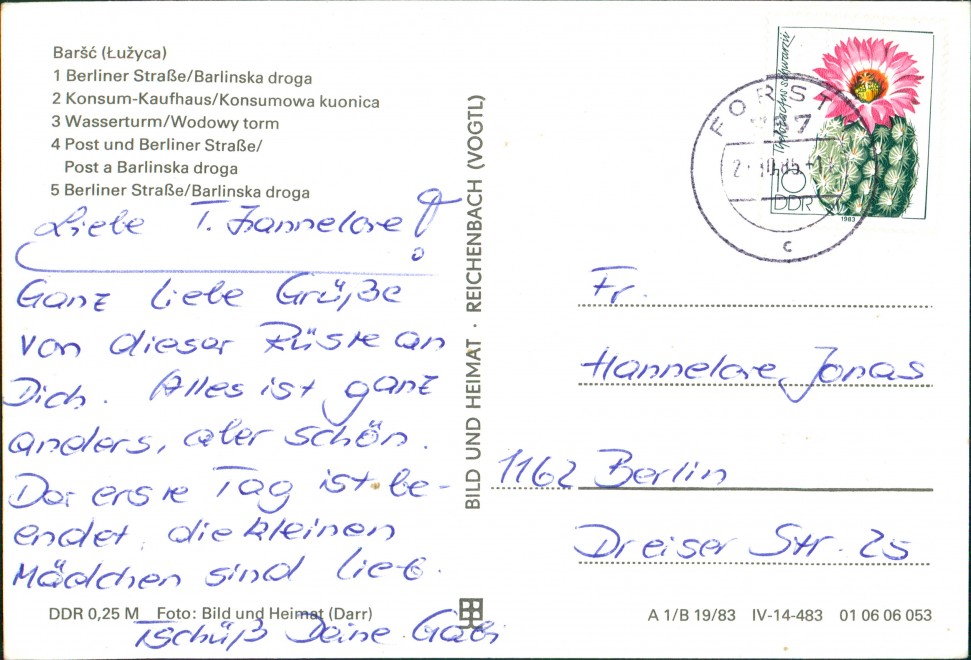 Baršć (Łužyca)
1 Berliner Straße/Barlinska droga
2 Konsum-Kaufhaus/Konsumowa kuonica
3 Wasserturm/Wodowy torm
4 Post und Berliner Straße/
Post a Barlinska droga
5 Berliner Straße/Barlinska droga
Liebe T. Hannelore!
Ganz liebe Grüße
von dieser Rüste an
Dich. Alles ist ganz
anders, aber schön.
Der erste Tag ist be-
endet, die kleinen
Mädchen sind lieb.
Tschüß Deine
DDR 0,25 M Foto: Bild und Heimat (Darr)
BILD UND HEIMAT · REICHENBACH (VOGTL)
FORST
7
c
10
DDR
1983
Fr.
Hannelore Jonas
1162 Berlin
Dreiser Str. 25
A 1/B 19/83 IV-14-483 01 06 06 053